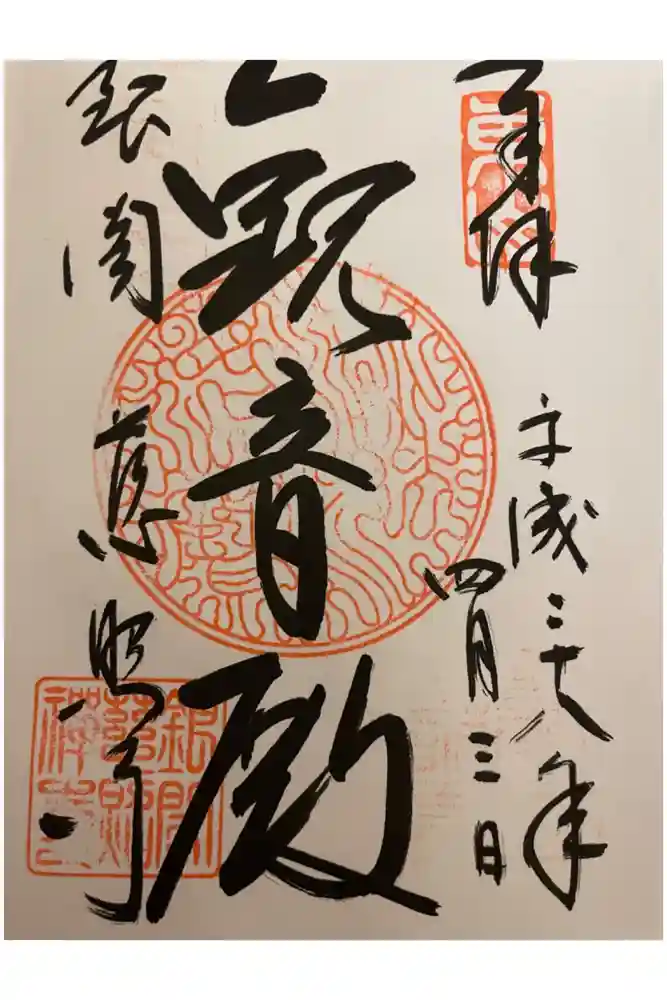 奉拝
平成二十八年
四月三日
観音殿
銀閣 慈照寺
銀閣
慈照
禅寺